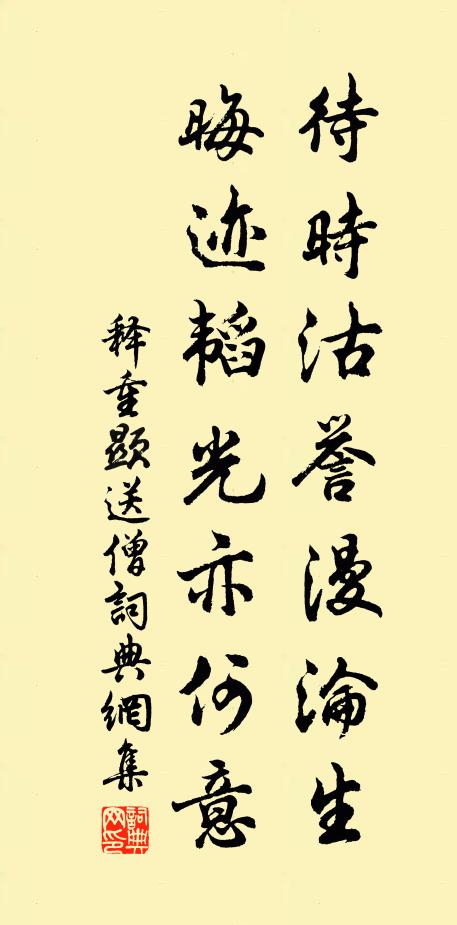 待時沽譽漫淪生
晦迹韜光亦何意
释重顯送僧詞典網集
詞典網印